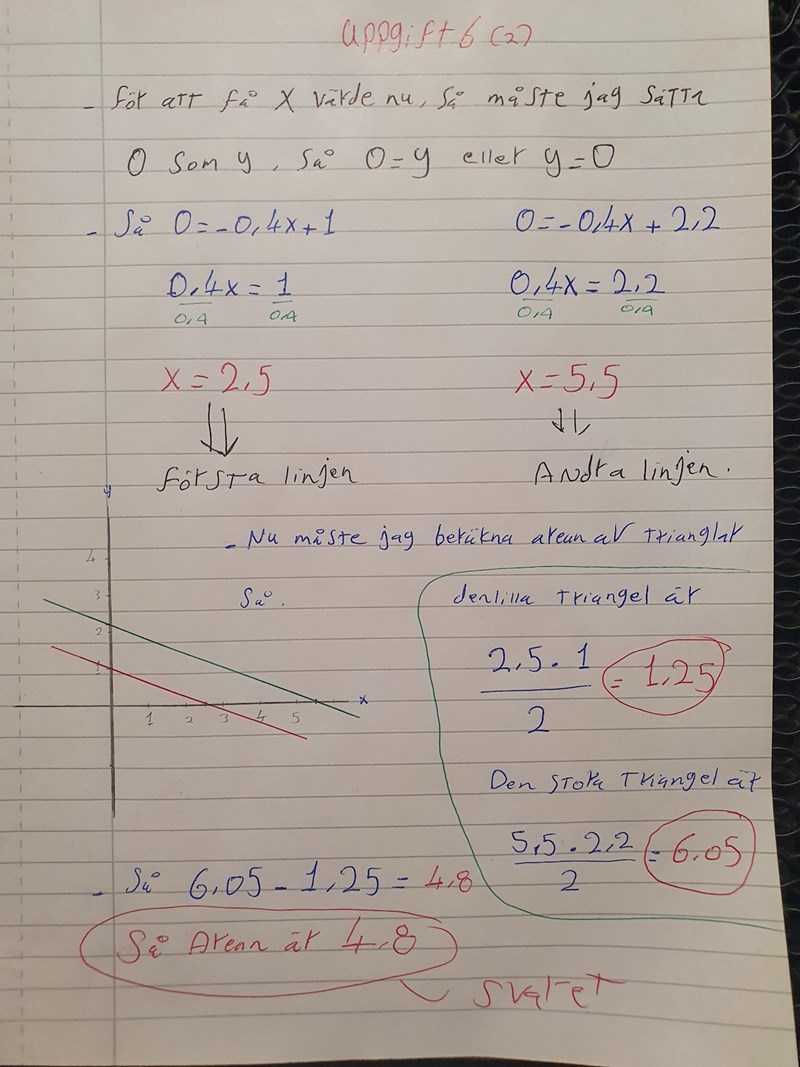 Uppgift 6 (2)
- För att få X värde nu, så måste jag sätta
0 som y, så 0=y eller y=0
- Så 0=-0,4x+1
0,4x = 1
0,4 0,4
x = 2,5
Första linjen
0=-0,4x + 2,2
0,4x = 2,2
0,4 0,4
x = 5,5
Andra linjen.
- Nu måste jag beräkna arean av trianglar
Så.
y
4
3
2
1
1 2 3 4 5
x
den lilla triangel är
2,5 · 1
= 1,25
2
Den stora triangel är
5,5 · 2,2
= 6,05
2
- Så 6,05 - 1,25 = 4,8
Så Arean är 4,8
svaret